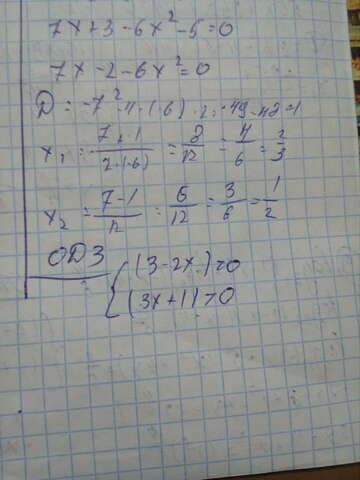 7x+3-6x²-5=0
7x-2-6x²=0
D=-7²-4·(-6)·2=49-48=1
x₁=(7+1)/(2·(-6))=8/12=4/6=2/3
x₂=(7-1)/12=6/12=3/6=1/2
ОДЗ
{(3-2x)>0
(3x+1)>0